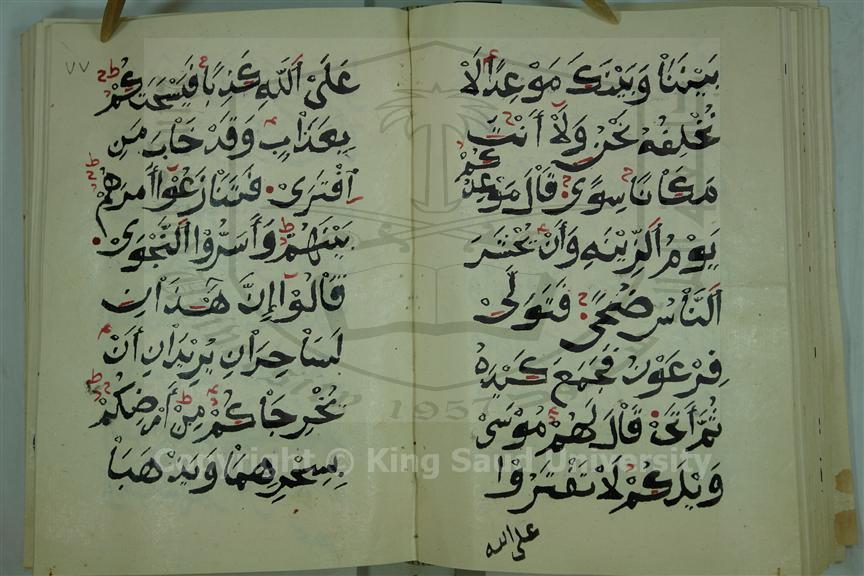 بَيْنَنَا وَبَيْنَكَ مَوْعِدًا لَا
نُخْلِفُهُ نَحْنُ وَلَا أَنْتَ
مَكَانًا سِوًى قَالَ مَوْعِدُكُمْ
يَوْمُ الزِّينَةِ وَأَنْ يُحْشَرَ
النَّاسُ ضُحًى فَتَوَلَّىٰ
فِرْعَوْنُ فَجَمَعَ كَيْدَهُ
ثُمَّ أَتَىٰ قَالَ لَهُمْ مُوسَىٰ
وَيْلَكُمْ لَا تَفْتَرُوا
على الله
٧٧
عَلَى اللَّهِ كَذِبًا فَيُسْحِتَكُمْ
بِعَذَابٍ وَقَدْ خَابَ مَنِ
افْتَرَىٰ فَتَنَازَعُوا أَمْرَهُمْ
بَيْنَهُمْ وَأَسَرُّوا النَّجْوَىٰ
قَالُوا إِنَّ هَٰذَانِ
لَسَاحِرَانِ يُرِيدَانِ أَنْ
يُخْرِجَاكُمْ مِنْ أَرْضِكُمْ
بِسِحْرِهِمَا وَيَذْهَبَا
Copyright © King Saud University
1957